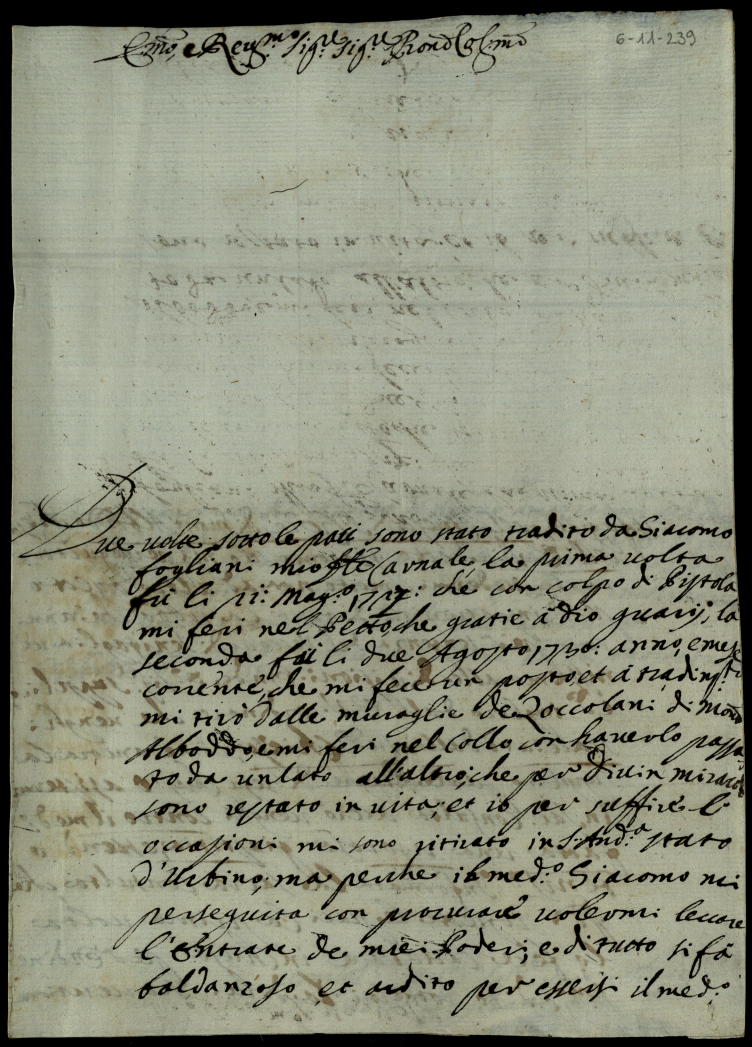 Em̃o, e Reu.mo Sig.r Sig.r Pron̄ Col.mo
6-11-239
Due uolte sotto le paci sono stato tradito da Giacomo
fogliani mio fr̃ello Carnale, la prima uolta
fù li 11: Mag.o che con colpo di Pistola
mi ferì nel Petto, che gratie à dio guarij, la
seconda fù li due Agosto 1730: anno, e mese
corrente, che mi fece un posto et à
mi tirò dalle muraglie de Zoccolani di
Alboddo, e mi ferì nel Collo con hauerlo passa
to da un lato all'altro, che per diuin
sono restato in uita; et io per l'
occasioni mi sono ritirato in S. And.a stato
d'Urbino, ma perche il med.o Giacomo mi
perseguita con procurare uolermi leccare
l'Entrate de miei Poderi, e di tutto si fà
baldanzoso, et ardito per essersi il med.o